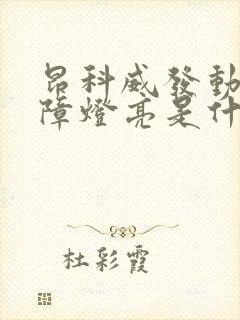 昂科威發動
障燈亮是什
杜彩霞